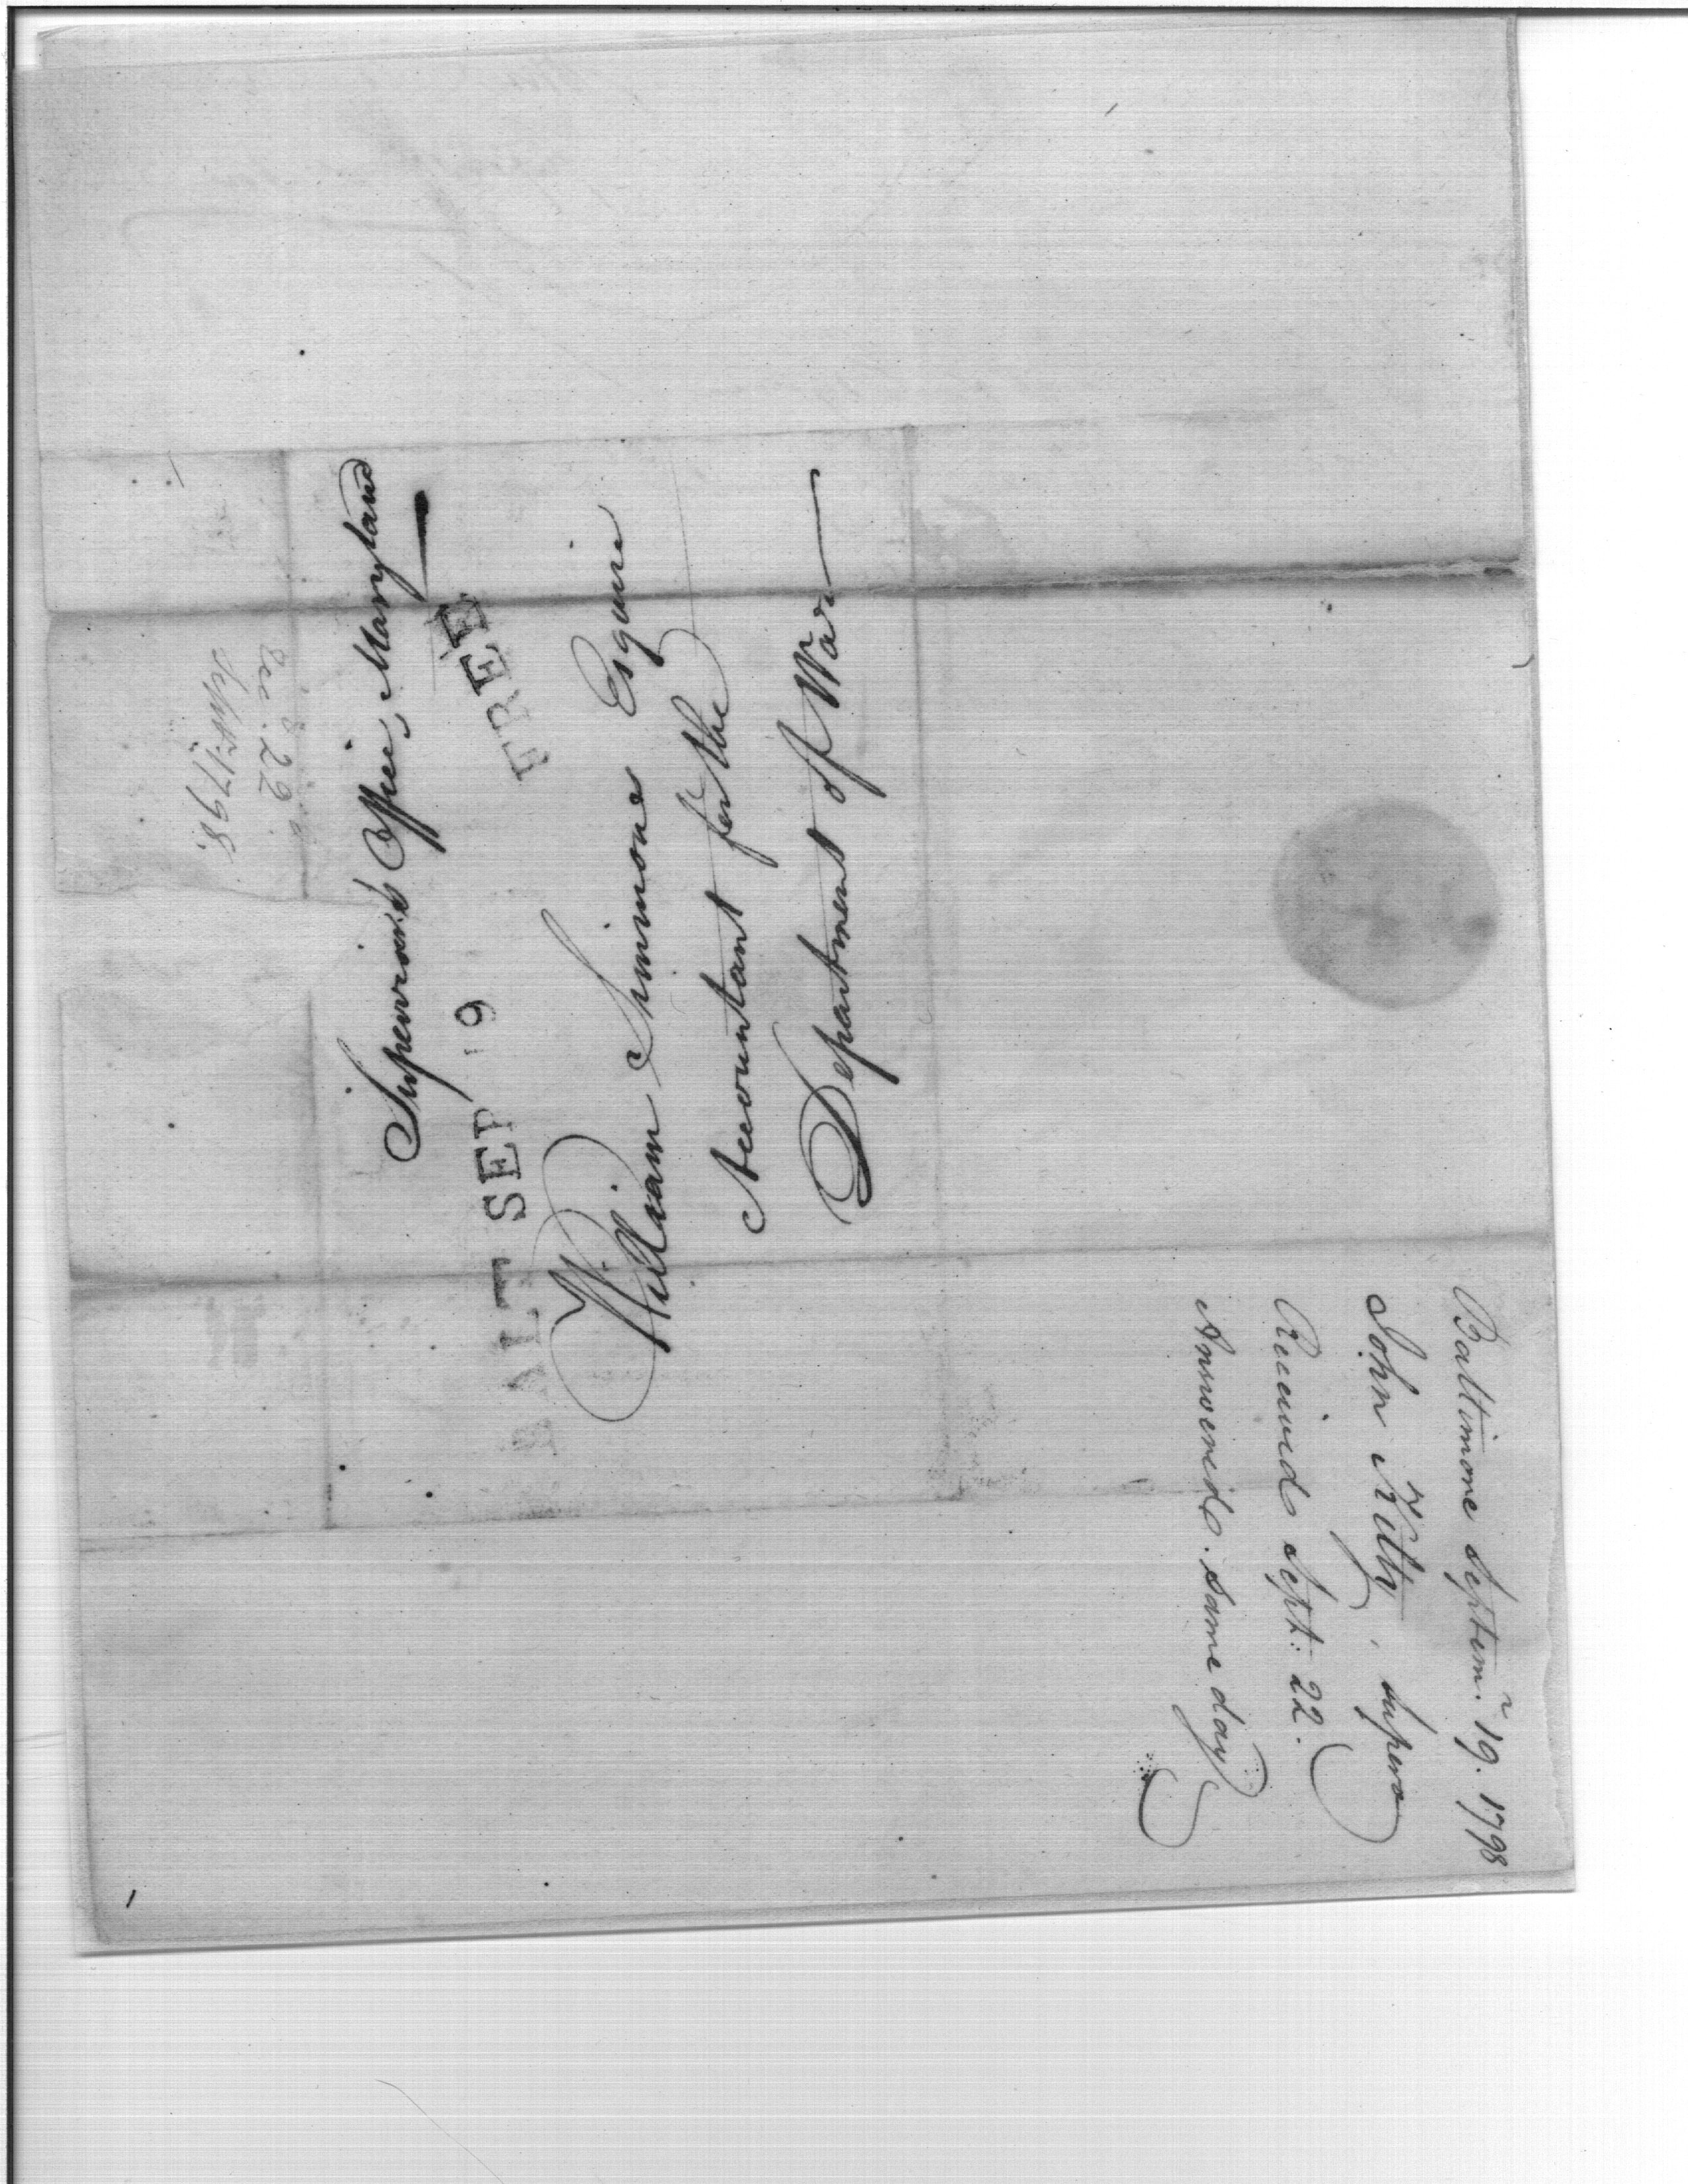 Supervisor's Office, Maryland
FREE
BALT SEP 19
William Simmons Esquire
Accountant for the
Department of War
Baltimore Septem.r 19. 1798
John Kilty, superv
Received Sept: 22.
Answered. same day
Rec.d 22.d
Sept.r 1798.